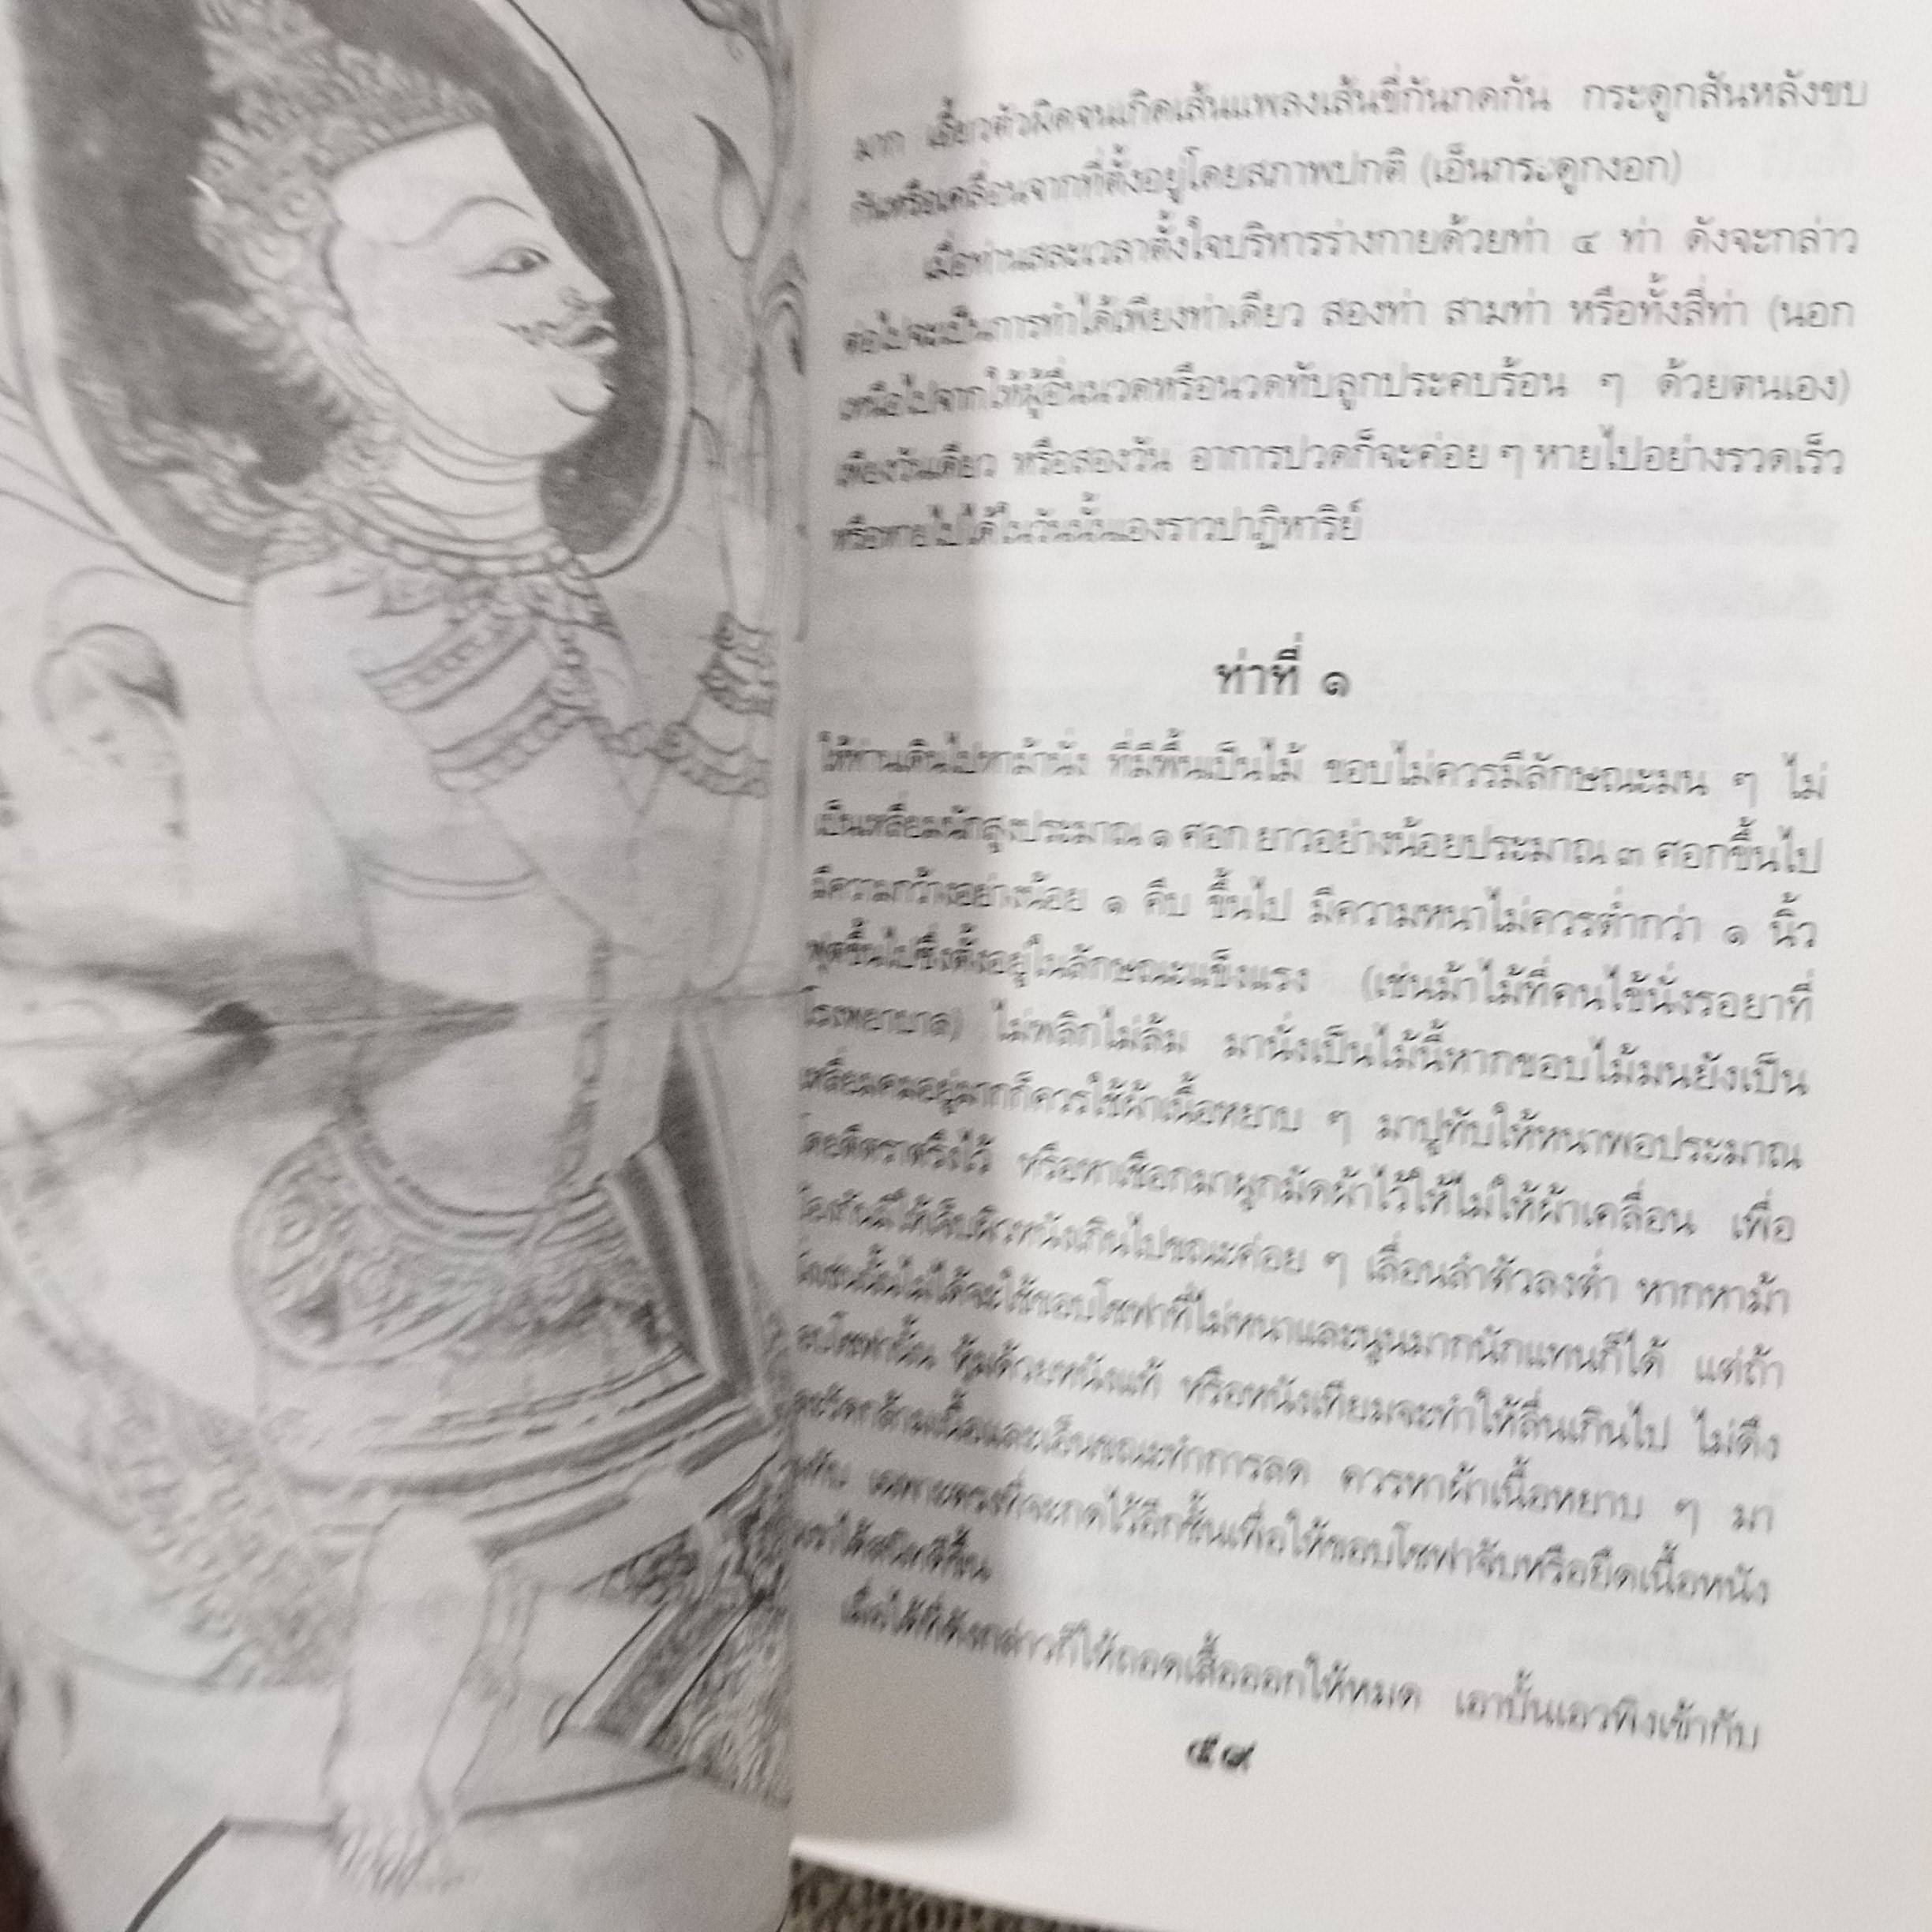 มาก เอี้ยวตัวผิดจนเกิดเส้นแพลงเส้นขี่กันกดกัน กระดูกสันหลังขบ
กันหรือเคลื่อนจากที่ตั้งอยู่โดยสภาพปกติ (เอ็นกระดูกงอก)
เมื่อท่านสละเวลาตั้งใจบริหารร่างกายด้วยท่า ๔ ท่า ดังจะกล่าว
ต่อไปจะเป็นการทำได้เพียงท่าเดียว สองท่า สามท่า หรือทั้งสี่ท่า (นอก
เหนือไปจากให้ผู้อื่นนวดหรือนวดทับลูกประคบร้อน ๆ ด้วยตนเอง)
เพียงวันเดียว หรือสองวัน อาการปวดก็จะค่อย ๆ หายไปอย่างรวดเร็ว
หรือหายไปได้ในวันนั้นเองราวปาฏิหาริย์
ท่าที่ ๑
ให้ท่านเดินไปหาม้านั่ง ที่มีพื้นเป็นไม้ ขอบไม่ควรมีลักษณะมน ๆ ไม่
เป็นเหลี่ยมนักสูงประมาณ ๑ ศอก ยาวอย่างน้อยประมาณ ๓ ศอกขึ้นไป
มีความกว้างอย่างน้อย ๑ คืบ ขึ้นไป มีความหนาไม่ควรต่ำกว่า ๑ นิ้ว
ฟุตขึ้นไปซึ่งตั้งอยู่ในลักษณะแข็งแรง (เช่นม้าไม้ที่คนไข้นั่งรอยาที่
โรงพยาบาล) ไม่พลิกไม่ล้ม มานั่งเป็นไม้นี้หากขอบไม้มนยังเป็น
เหลี่ยมคมอยู่มากก็ควรใช้ผ้าเนื้อหยาบ ๆ มาปูทับให้หนาพอประมาณ
โดยติดราตรึงไว้ หรือหาเชือกมาผูกมัดผ้าไว้ให้ไม่ให้ผ้าเคลื่อน เพื่อ
ผิวหนังเกินไปขณะค่อย ๆ เลื่อนลำตัวลงต่ำ หากหาม้า
ไม่ได้จะใช้ขอบโซฟาที่ไม่หนาและนูนมากนักแทนก็ได้ แต่ถ้า
โซฟานั้น หุ้มด้วยหนังแท้ หรือหนังเทียมจะทำให้ลื่นเกินไป ไม่ดึง
กล้ามเนื้อและเอ็นขณะทำการลด ควรหาผ้าเนื้อหยาบ ๆ มา
ทับ เฉพาะตรงที่จะกดไว้อีกชั้นเพื่อให้ขอบโซฟาจับหรือยึดเนื้อหนัง
ดีขึ้น
เมื่อได้ที่ดังกล่าวก็ให้ถอดเสื้อออกให้หมด เอาบั้นเอวพิงเข้ากับ
๕๙